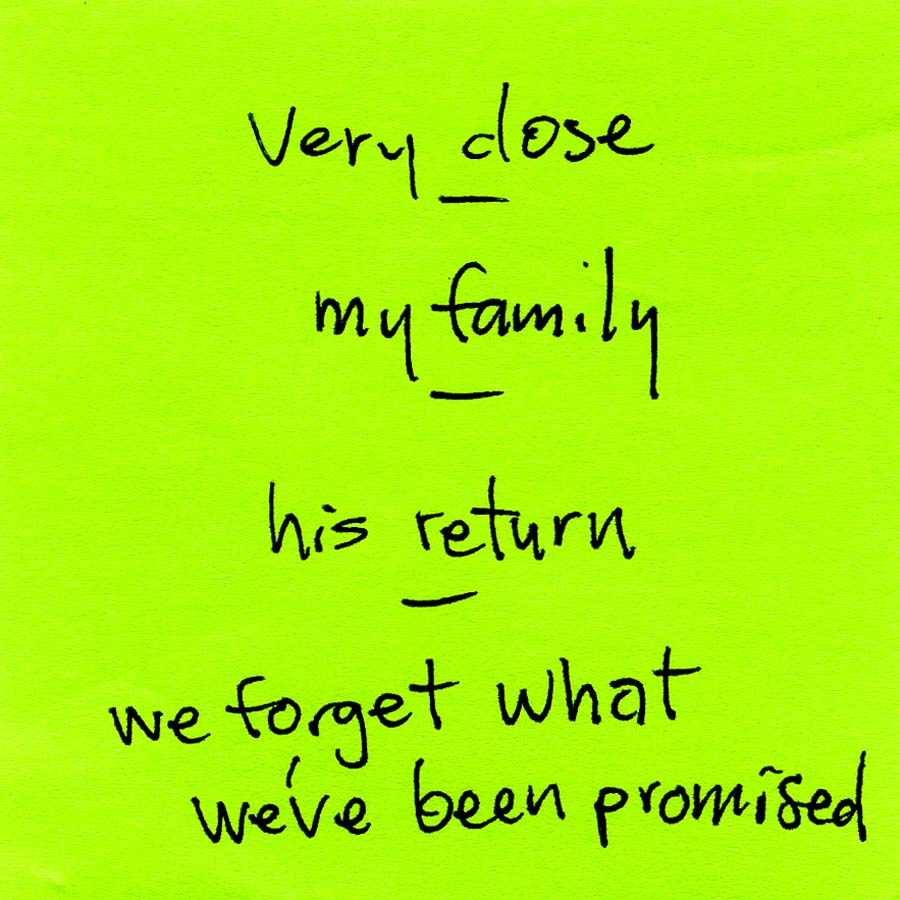 very close
—
my family
—
his return
—
we forget what
we've been promised